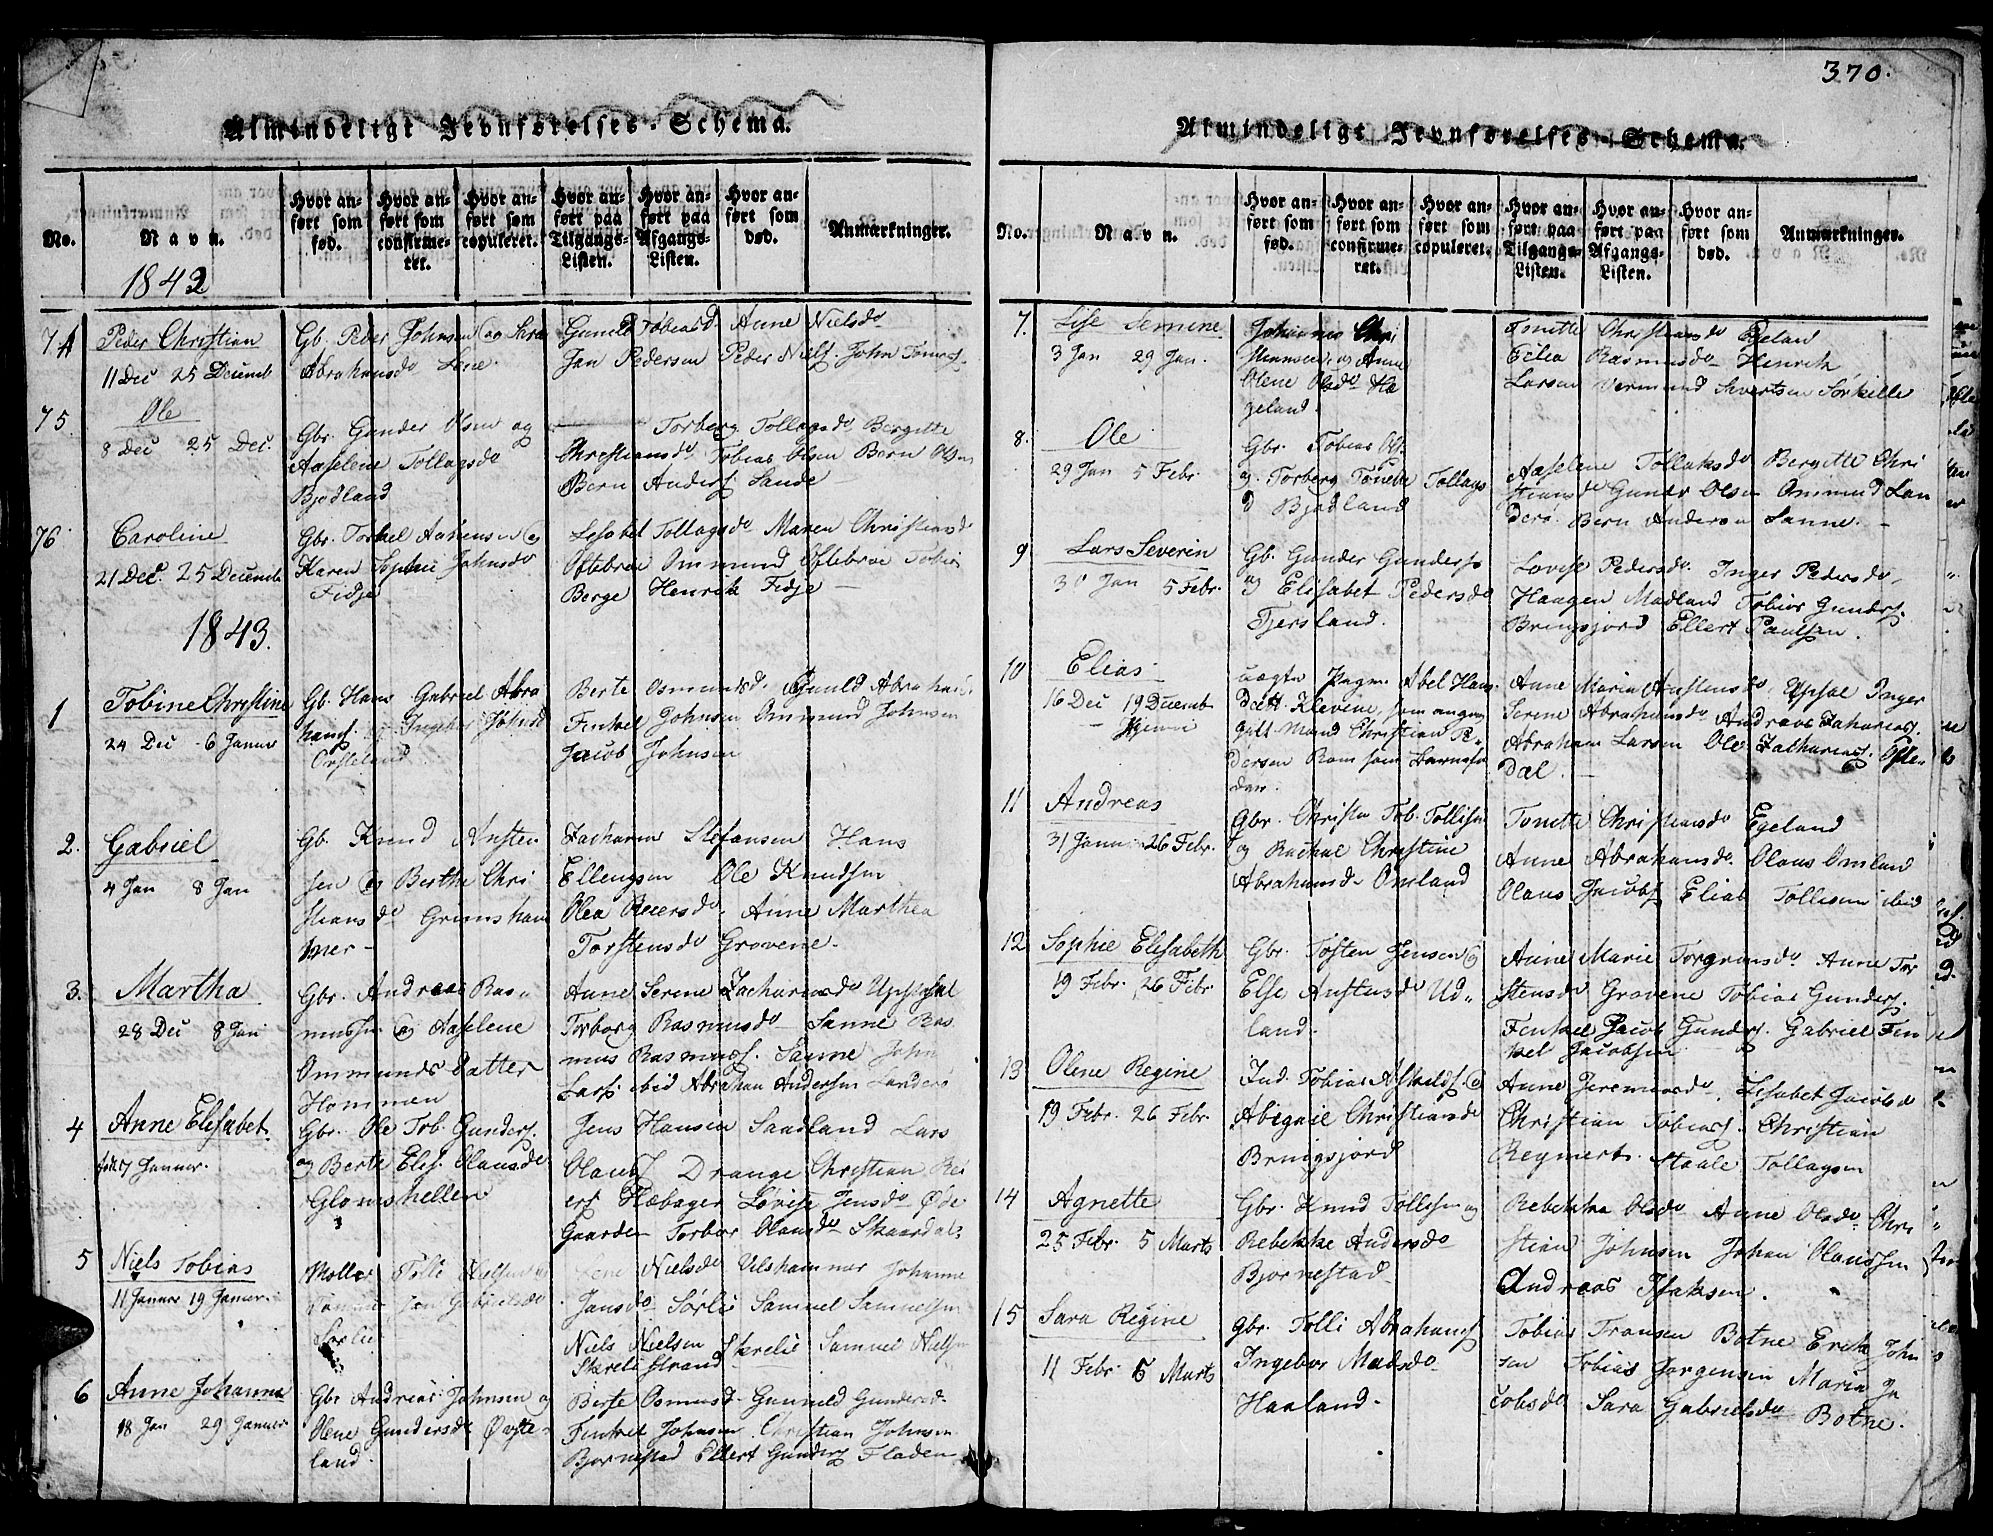 370.
Almindeligt Jevnførelses-Schema.
No.
Navn.
Hvor anført som fød.
Hvor anført som confirmeret.
Hvor anført som copuleret.
Hvor anført paa Tilgangs-Listen.
Hvor anført paa Afgangs-Listen.
Hvor anført som død.
Anmærkninger.
1842
74
Peder Christian
11 Dec 25 Decemb
Gb. Peder Johnsen og
Abrahamsd. Lene.
Gunild Tobiasd. Anne Nielsd.
Jan Pedersen Peder Niels. John
75.
Ole
8 Dec 25 Dec.
Gbr. Gunder Olsen og
Aaselene Tollagsd
Bjodland
Torberg Tollagsd. Bergitte
Christiansd. Tobias Olsen Bern Olsen
Bern Anders. Lande
76
Caroline
21 Dec. 25 Decemb
Gbr. Torkel og
Karen Sophie Johnsd
Fidje
Lisabet Tollagsd Maren Christiansd
Oftebroe Ommund Oftebroe Tobias
Berge Henrik Fidje
1843.
1
Tobine Christine
24 Dec 6 Januar
Gb. Hans Gabriel Abra
hams. og Ingebor Johnsd
Berte Osmunsd. Gunild Abrahamsd
Fenkel Johnsen Ommund Johnsen
Jacob Johnsen
2.
Gabriel
4 Jan 8 Jan
Gb. Knud Austen
sen og Berthe Chri
stians do Grimsham
mer
Zacharias Stefansen Hans
Ellengsen Ole Knudsen
Olea Reiersd. Anne Marthea
Torstensd Grovene.
3.
Martha
28 Dec 8 Jan
Gbr. Andreas Ras
mussen og Aaselene
Ommunds Datter
Hommen
Anne Serene Zachariasd Upsahl
Torborg Rasmusd Sanne Ras
mus Rasmuss. Sanne John
Lars. ibid Abraham Andersen Landerø
4
Anne Elisabet
født 7 Januar.
Gbr. Ole Tob. Gunders.
og Berte Elis. Olausd
Glomshellen
Jens Hansen Saadland Lars
Olaus Drange Christian Rei
ers Flæbager Lovise Jensd Øde
Gaarden Torbor Olausd Skaardal
5
Niels Tobias
11 Januar 19 Januar
Tolli Nielsen og
Sørlie
Nielsd Ulshammer Johanne
Jansd Sørlie Samuel Samuelsen
Niels Nielsen Skrelie Samuel Nielsen
Skreli strand
6
Anne Johanna
18 Jan 29 Januar
Gbr Andreas Johnsen og
Olene Gundersd Øvste
land.
Berte Osmusd. Gunneld Gundersd.
Fenkel Johnsen Christian Johnsen
Bjornestad Ellert Gunders Fladen
Almindeligt Jevnførelses-Schema.
No.
Navn.
Hvor anført som fød.
Hvor anført som confirmeret.
Hvor anført som copuleret.
Hvor anført paa Tilgangs-Listen.
Hvor anført paa Afgangs-Listen.
Hvor anført som død.
Anmærkninger.
7.
Lise Semine
3 Jan 29 Jan.
Johannes Chri
stiansen og Anne
Olene Olsd Hæ
geland.
Tonette Christiansd Egelan
Rasmusd Henrik
Larsen Vermund Sivertsen
8.
Ole
29 Jan 5 Febr
Gbr. Tobias Ols.
og Torberg Tonette Tollags
d Bjodland
Aaselene Tollaksd Bergitte Chri
stiansd Gunder Olsen Ommund Lan
derø. Bern Andersen Sanne.
9
Lars Severin
30 Jan 5 Febr.
Gb. Gunder Gunders
og Elisabet Pedersd
Tjersland.
Lovise Pedersd. Inger Pedersd
Haagen Madland Tobias Gunders.
Bringsjord Ellert Paulsen.
10
Elias
16 Dec 19 Decemb
Hjemme
uægte Pigen Abel Hans
Datt. Klevine, som angav
gift Mand Christian Pe
dersen Rom som Barnefa
der.
Anne Maria Austensd. Upsal Inger
Serene Abrahamsd Andreas Zacharias.
Abraham Larsen Ole Zacharias. Ofte
dal.
11
Andreas
31 Janu 26 Febr.
Gbr. Christen Tob. Tollisen
og Rachal Christine
Abrahamsd Omland
Tonette Christiansd Egeland
Anne Abrahamsd. Olaus Omland
Olaus Jacobs Elias Tollisen ibid
12
Sophie Elisabeth
19 Febr. 26 Febr
Gbr. Tosten Jensen og
Else Austensd Ud
land.
Anne Marie Torgrimsd. Anne Tor
stensd Grovene Tobias Gunders.
Fenkel Jacob Gunders. Gabriel Fen
kel Jacobsen
13
Olene Regine
19 Febr. 26 Febr.
Ind. Tobias og
Abigael Christiansd
Bringsjord
Anne Jeremiasd. Lisabet Jacobsd
Christian Tobias. Christian
Reynerts. Staale Tollagsen
14
Agnette
25 Febr. 5 Marts
Gbr. Knud Tollisen og
Rebekke Andersd
Bjornestad
Rebekka Olsd Anne Olsd. Chri
stian Johnsen Johan Olaussen
Andreas Isaksen.
15
Sara Regine
11 Febr. 5 Marts
Gbr. Tolli Abrahams
Ingebor Madsd
Haaland.
Tobias Transen Botne Erik John
sen Tobias Jørgensen Maria Ja
cobsd Sara Gabrielsd Botne.